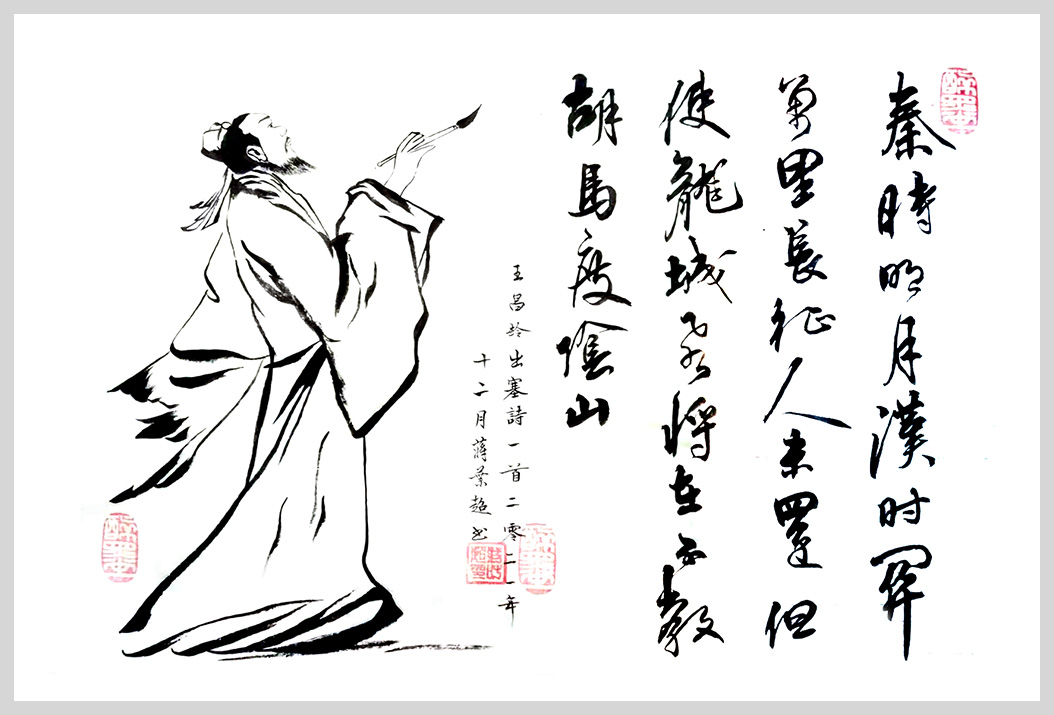 秦時明月漢时關
萬里長征人未還但
使龍城飛將在不教
胡馬度陰山
王昌龄出塞詩一首二零二一年
十二月蔣葉超书